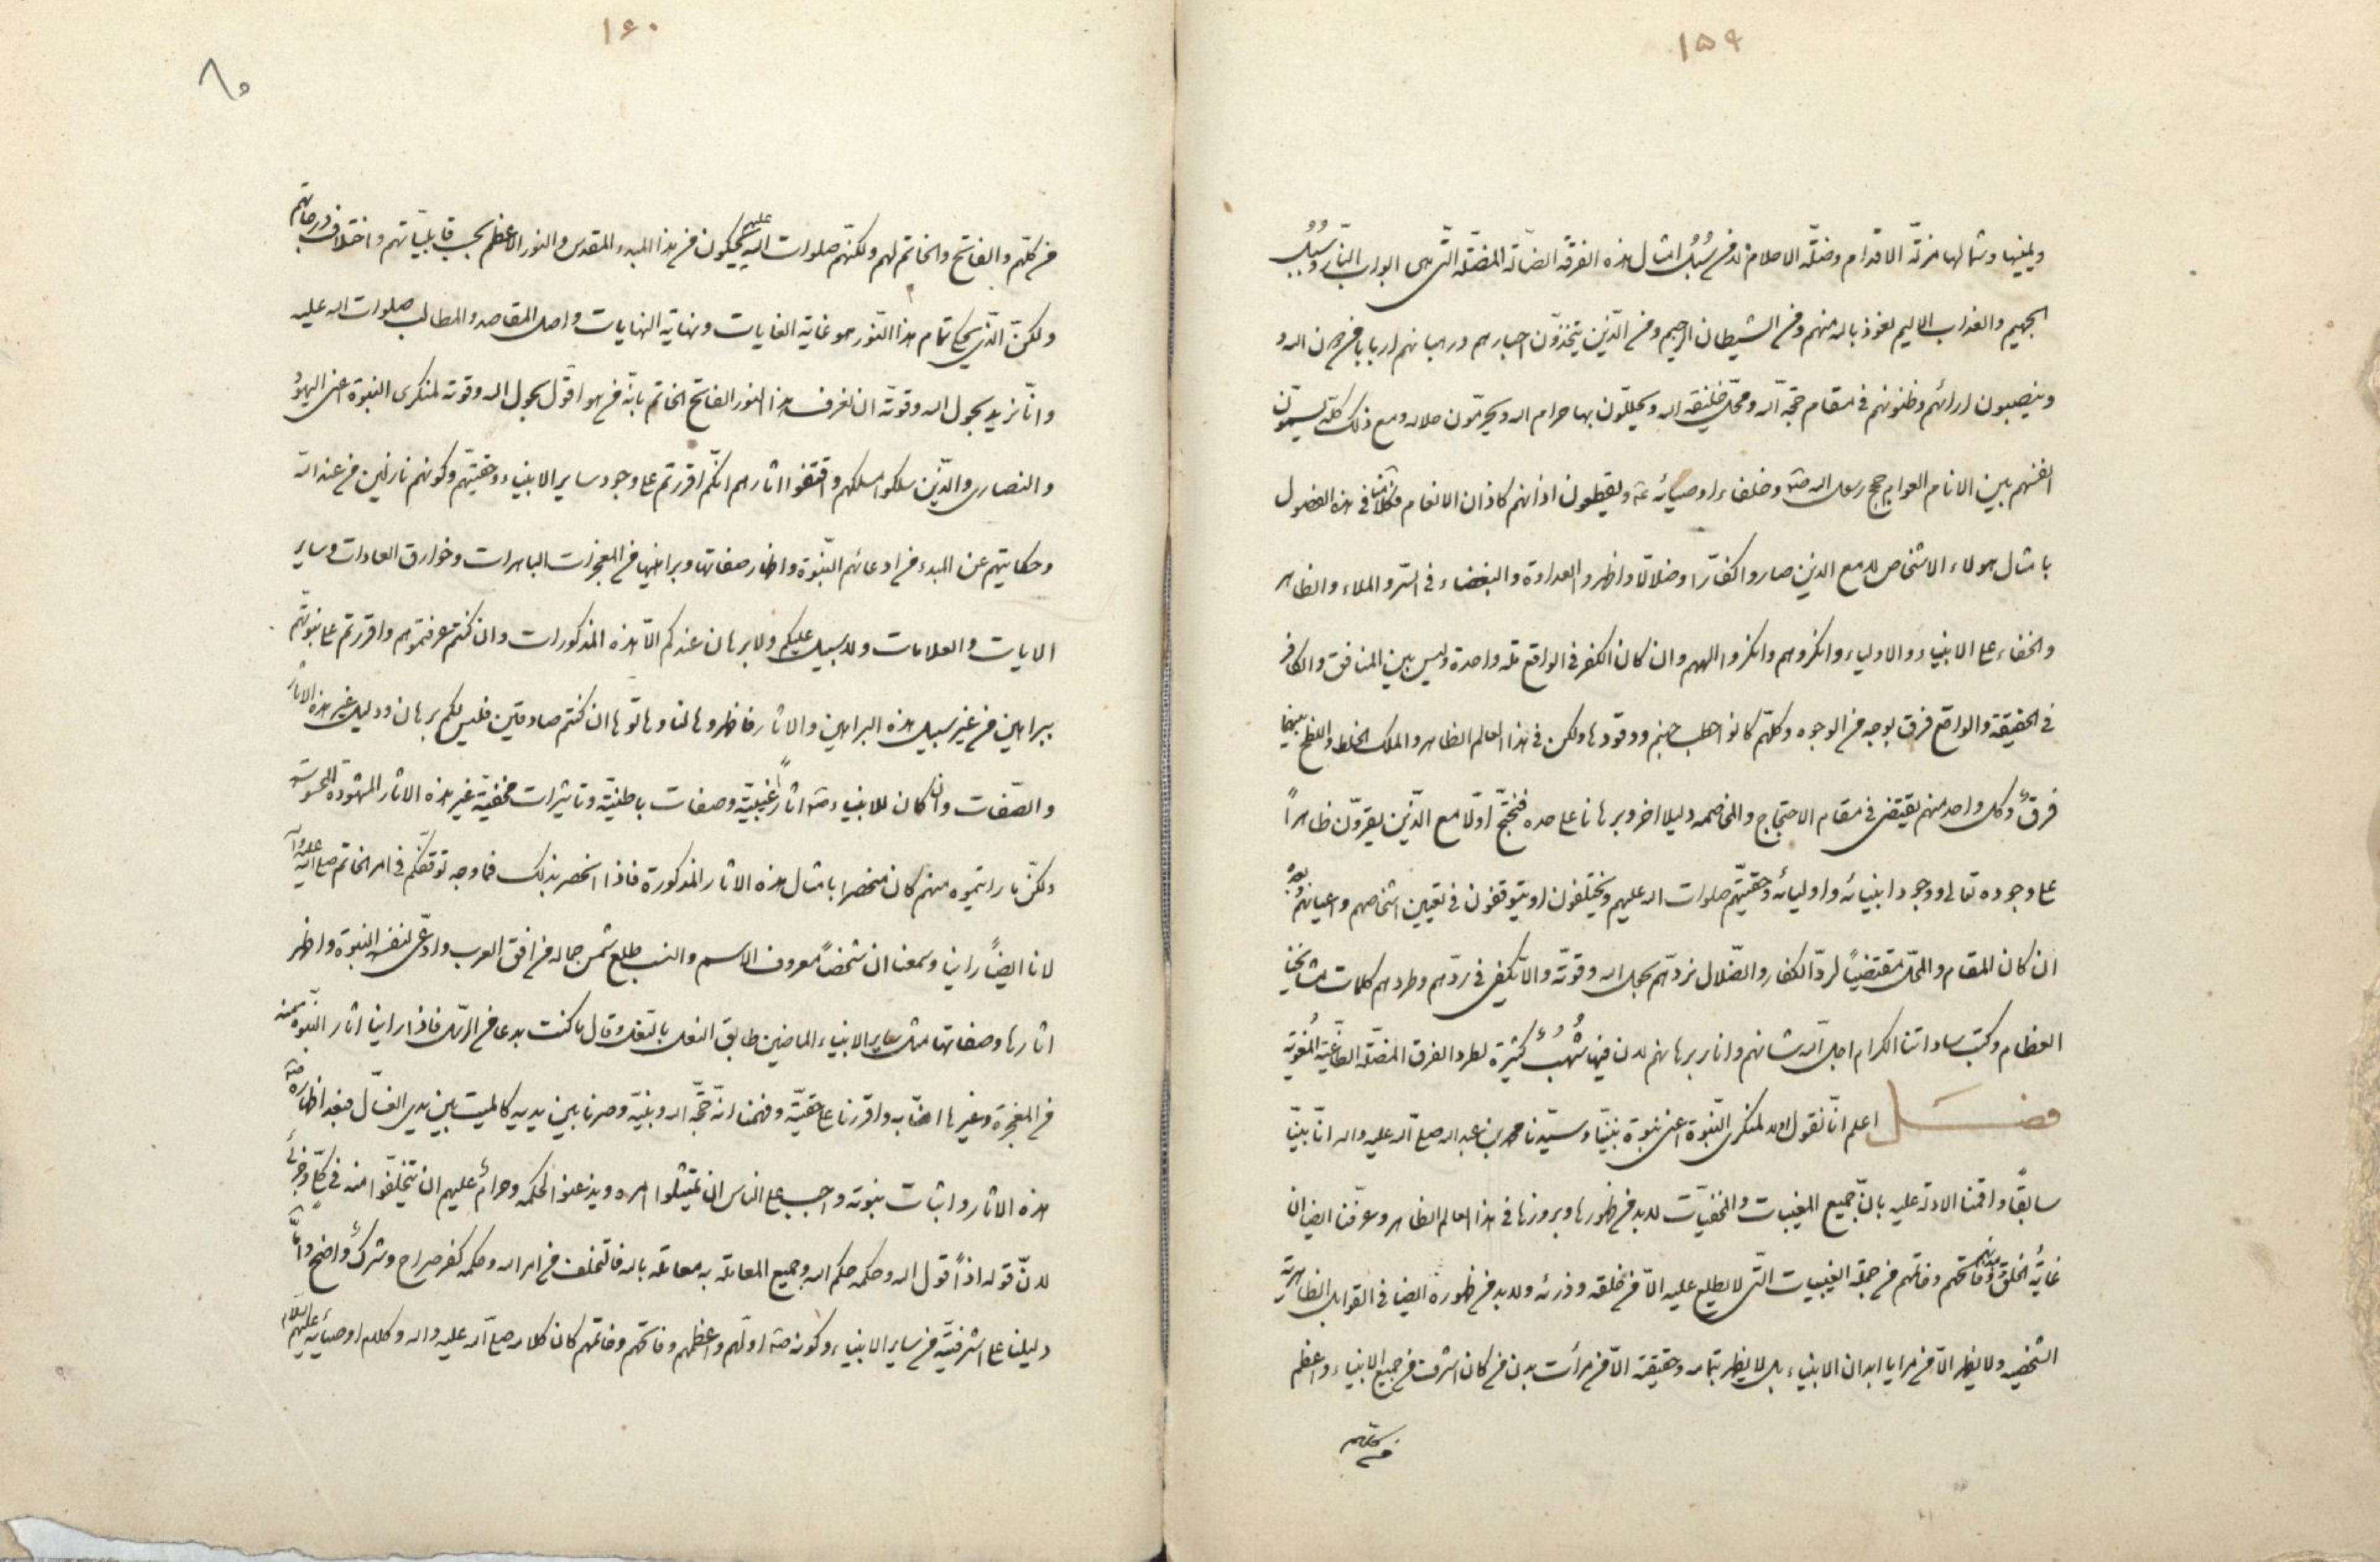 ١٥٩
ويمينها وشمالها مزلّة الاقدام ومضلّة الاحلام لانه من سُبُل امثال هذه الفرقة الضالة المضلّة التّى هى ابواب النّار وسُبُل
الجحيم والعذاب الاليم نعوذ بالله منهم ومن الشيطان الرجيم ومن الّذين يتخذون احبارهم ورهبانهم اربابا من دون الله و
ينصبون ارائهم وظنونهم فى مقام حجة الله ومحلّ خليفة الله ويحلّلون بها حرام الله ويحرّمون حلاله ومع ذلك كلّه يسمّون
انفسهم بين الانام العوام حجج رسول الله صه وخلفاء اوصيائه عه ويقطعون اذانهم كاذان الانعام فكلامنا فى هذه الفصول
بامثال هولاء الاشخاص لا مع الذين صاروا كفّارا وضلالا واظهروا العداوة والبغضاء فى السّر والملاء والظاهر
والخفاء على الانبياء والاولياء وانكروهم وانكروا الههم وان كان الكفر فى الواقع ملة واحدة وليس بين المنافق والكافر
فى الحقيقة والواقع فرق بوجه من الوجوه وكلّهم كانوا حطب جهنم ووقودها ولكن فى هذا العالم الظاهر والملك الخلط واللطخ بينهما
فرقٌ وكل واحد منهم يقتضى فى مقام الاحتجاج والمخاصمه دليلا اخر وبرهانا على حده فنحتجّ اوّلا مع الّذين يقرّون ظاهراً
على وجوده تعالى ووجود انبيائه واوليائه وحقيّتهم صلوات الله عليهم ويختلفون او يتوقفون فى تعيين اشخاصهم واعيانهم وبعد
ان كان المقام والمحلّ مقتضياً لردّ الكفار والضّلال نردّهم بحول الله وقوّته والّا يكفى فى ردّهم وطردهم كلمات مشايخنا
العظام وكتب ساداتنا الكرام اجل الله شانهم وانار برهانهم لان فيها شُهُبٌ كثيرة لطرد الفرق المضلّة الطاغية المُغوية
فصل اعلم انّا نقول اولا لمنكرى النّبوة اعنى نبوة نبيّنا وسيّدنا محمد بن عبد الله صلى الله عليه واله انّا بيّنا
سابقاً واقمنا الادلة عليه بانّ جميع المغيبات والمخفيّات لابد من ظهورها وبروزها فى هذا العالم الظاهر وعرّفنا ايضا ان
غايةُ الخلق ومبدئهم وفاتحتهم وخاتمهم من جملة الغيبيات التّى لا يطلع عليه الّا من خلقه وذرئه ولابد من ظهوره ايضا فى القوابل الظاهرية
الشخصية ولا يظهر الّا من مرايا ابدان الانبياء بل لا يظهر بتمامه وحقيقته الّا من مرأت بدن من كان اشرف من جميع الانبياء واعظم
من كلهم
١٦٠
٨٠
من كلّهم والفاتح والخاتم لهم ولكنّهم صلوات الله عليهم يحكون من هذا المبدء المقدس والنور الاعظم بحسب قابليّاتهم واختلاف درجاتهم
ولكنّ الّذى يحكى تمام هذا النّور هو غاية الغايات ونهاية النهايات واصل المقاصد والمطالب صلوات الله عليه
وانّا نريد بحول الله وقوته ان نعرف هذا النور الفاتح الخاتم بانّه من هو اقول بحول الله وقوته لمنكرى النبوة اعنى اليهود
والنصارى والّذين سلكوا مسلكهم واقتفوا اثارهم انكم اقررتم على وجود ساير الانبياء وحقيّتهم وكونهم نازلين من عند الله
وحكايتهم عن المبدء من ادعائهم النّبوة واظهار صفاتها وبراهينها من المعجزات الباهرات وخوارق العادات وساير
الايات والعلامات ولا سبيل عليكم ولا برهان عندكم الّا هذه المذكورات وان كنتم عرفتموهم واقررتم على نبوّتهم
ببراهين من غير سبيل هذه البراهين والاثار فاظهروها لنا وهاتوها ان كنتم صادقين فليس لكم برهان ودليل غير هذه الاثار
والصّفات وان كان للانبياء صه اثار غيبيّة وصفات باطنيّة وتاثيرات مخفيّة غير هذه الاثار المشهودة المحسوسة
ولكنّ ما رايتموه منهم كان منحصرا بامثال هذه الاثار المذكورة فاذا انحصر بذلك فما وجه توقفكم فى امر الخاتم صلى الله عليه واله
لانا ايضاً راينا وسمعنا ان شخصاً معروف الاسم والنسب طلع شمس جماله من افق العرب وادعى لنفسه النبوة واظهر
اثارها وصفاتها مثل ساير الانبياء الماضين طابق النعل بالنعل وقال ما كنت بدعا من الرسل فاذا راينا اثار النبوة منه
من المعجزة وغيرها امنّا به واقررنا على حقيّته وفهمنا انه حجّة الله ونبيّه وصرنا بين يديه كالميت بين يدى الغسّال فبعد اظهاره صه
هذه الاثار واثبات نبوته واجب على الناس ان يمتثلوا امره ويذعنوا لحكمه وحرام عليهم ان يتخلّفوا منه فى كلّى وجزئى
لانّ قوله اذاً قول الله وحكمه حكم الله وجميع المعاملة به معاملة بالله فالتخلف من امر الله وحكمه كفر صراح وشركٌ واضح وامّا
دليلنا على اشرفيته من ساير الانبياء وكونه صه اولهم واعظمهم وفاتحهم وخاتمهم كان كلامه صلى الله عليه واله وكلام اوصيائه عليهم السلام